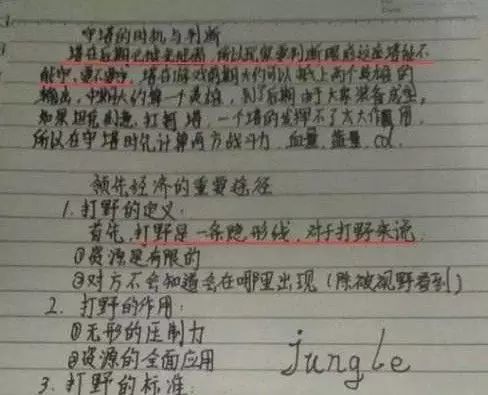 守塔的时机与判断
塔在后期也挺重要,所以玩家要判断眼前这座塔能不
能守,要不要守,塔在游戏前期大约可以抵上两个英雄的
输出,中期大约算一个英雄,到了后期由于大家装备成型,
如果坦克刚进,打到塔,一个塔的发挥不了太大作用
所以在守塔时先计算两方战斗力,血量,蓝量,cd.
领先经济的重要途径
1.打野的定义:
首先,打野是一条隐形线,对于打野来说
①资源是有限的
②对方不会知道会在哪里出现(除被视野看到)
2.打野的作用:
①无形的压制力
②资源的全面应用
jungle
3.打野的标准: